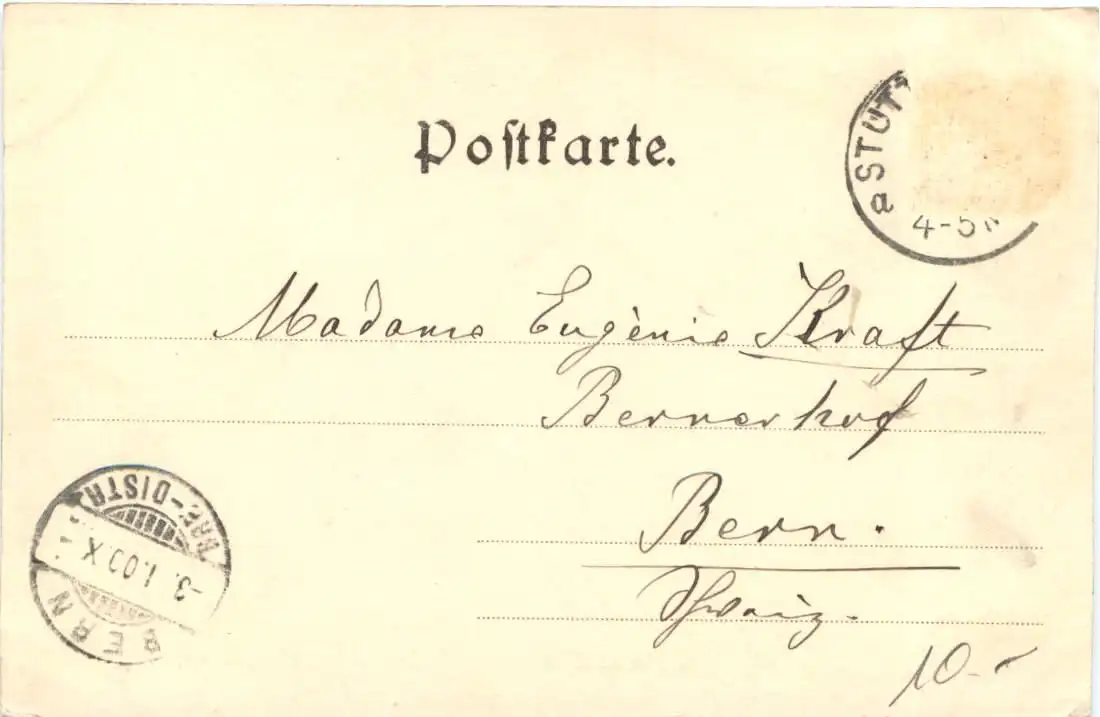 Postkarte.
a STUT
4-5
Madame Eugènie Kraft
Bernerhof
Bern.
Schweiz.
BERN
-3.1.00.X
BRF-DISTR.
10.-